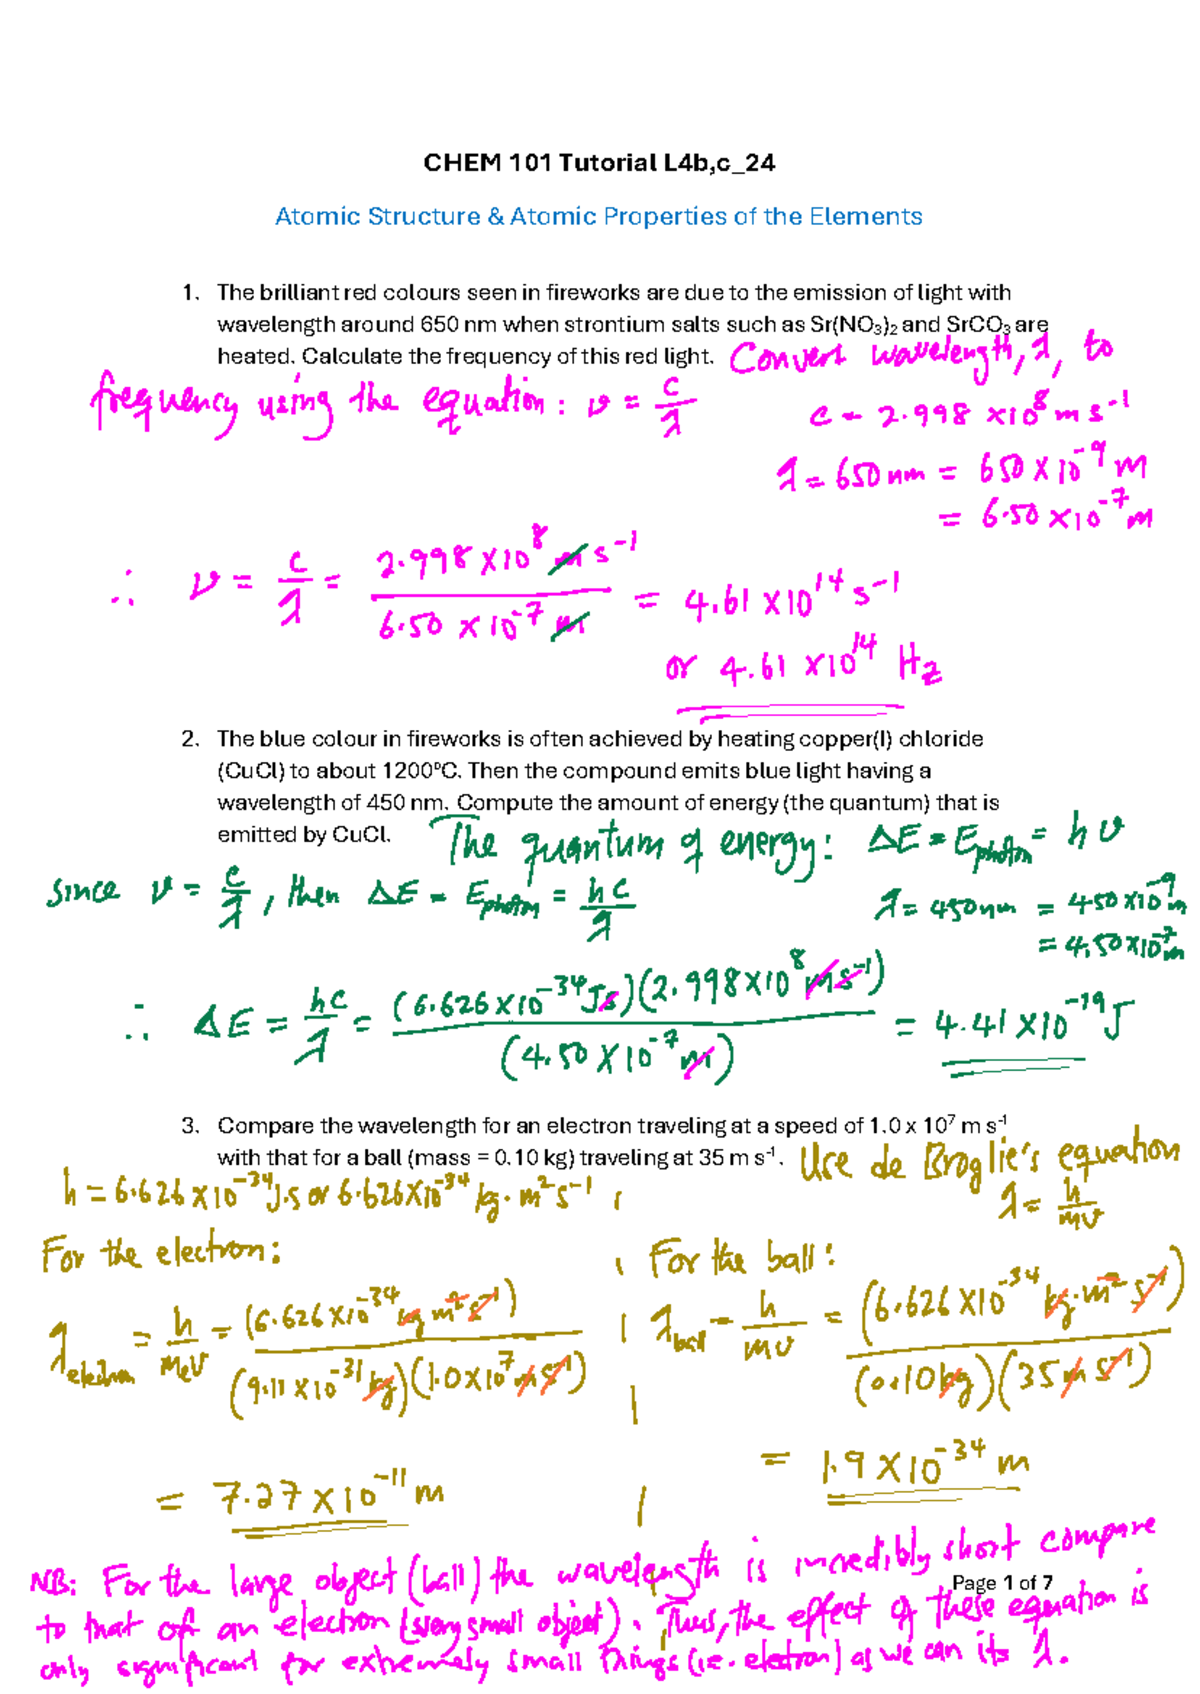 CHEM 101 Tutorial L4b,c_24
Atomic Structure & Atomic Properties of the Elements
1. The brilliant red colours seen in fireworks are due to the emission of light with
wavelength around 650 nm when strontium salts such as Sr(NO₃)₂ and SrCO₃ are
heated. Calculate the frequency of this red light. Convert wavelength, λ, to
frequency using the equation: ν = c/λ
c = 2.998 ×10⁸ m s⁻¹
λ = 650 nm = 650 × 10⁻⁹ m
= 6.50 × 10⁻⁷ m
∴ ν = c/λ = 2.998 × 10⁸ m s⁻¹ / 6.50 × 10⁻⁷ m = 4.61 × 10¹⁴ s⁻¹
or 4.61 × 10¹⁴ Hz
2. The blue colour in fireworks is often achieved by heating copper(I) chloride
(CuCl) to about 1200⁰C. Then the compound emits blue light having a
wavelength of 450 nm. Compute the amount of energy (the quantum) that is
emitted by CuCl. The quantum of energy: ΔE = Ephoton = hν
Since ν = c/λ, then ΔE = Ephoton = hc/λ
λ = 450 nm = 450 × 10⁻⁹ m
= 4.50 × 10⁻⁷ m
∴ ΔE = hc/λ = (6.626 × 10⁻³⁴ Js)(2.998 × 10⁸ m s⁻¹) / (4.50 × 10⁻⁷ m) = 4.41 × 10⁻¹⁹ J
3. Compare the wavelength for an electron traveling at a speed of 1.0 x 10⁷ m s⁻¹
with that for a ball (mass = 0.10 kg) traveling at 35 m s⁻¹. Use de Broglie's equation
λ = h/mv
h = 6.626 × 10⁻³⁴ J.s or 6.626 × 10⁻³⁴ kg. m² s⁻¹
For the electron:
λelectron = h/mev = (6.626 × 10⁻³⁴ kg m² s⁻¹) / (9.11 × 10⁻³¹ kg)(1.0 × 10⁷ m s⁻¹)
= 7.27 × 10⁻¹¹ m
For the ball:
λball = h/mv = (6.626 × 10⁻³⁴ kg. m² s⁻¹) / (0.10 kg)(35 m s⁻¹)
= 1.9 × 10⁻³⁴ m
NB: For the large object (ball) the wavelength is incredibly short compare
Page 1 of 7
to that of an electron (very small object). Thus, the effect of these equation is
only significant for extremely small things (i.e. eletron) as we can its λ.